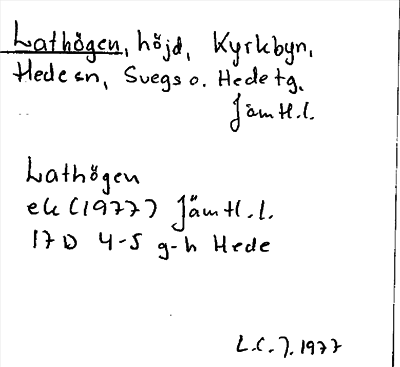 Lathögen, höjd, Kyrkbyn,
Hede sn, Svegs o. Hede tg,
Jämtl.l.
Lathögen
ek (1977) Jämtl.l.
17D 4-5 g-h Hede
L.C.J. 1977